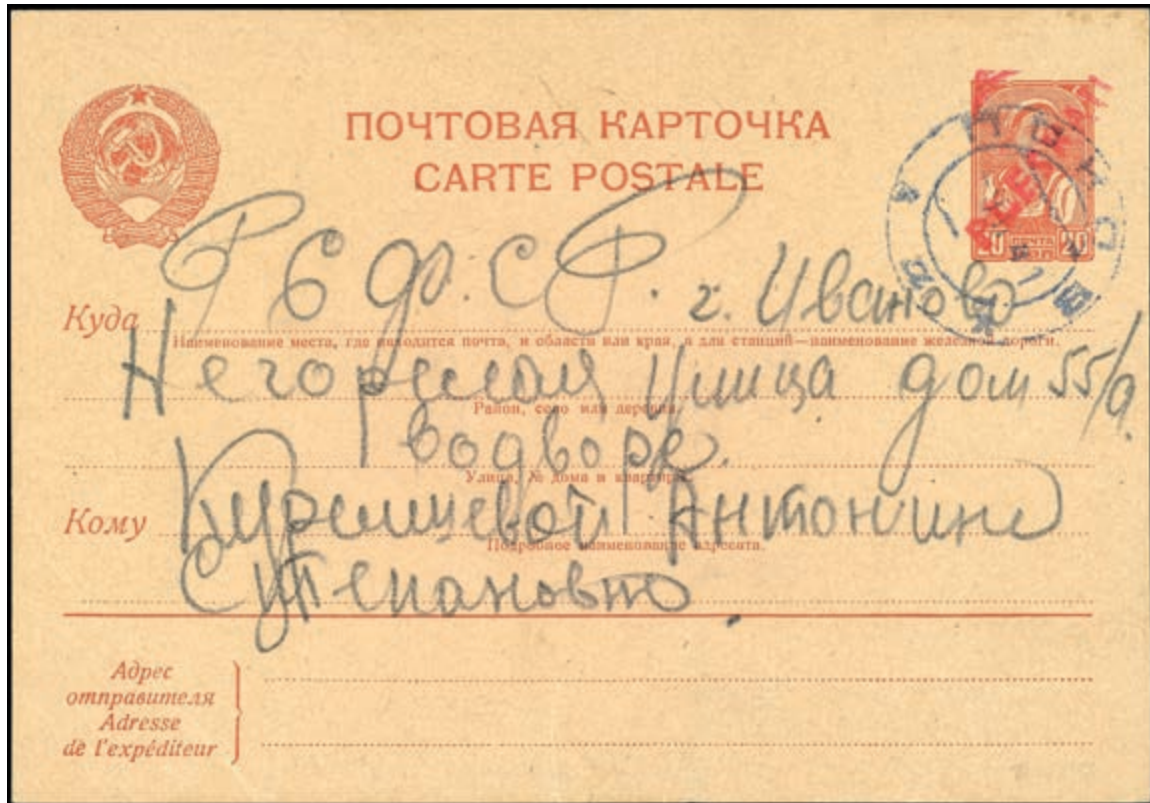 ПОЧТОВАЯ КАРТОЧКА
CARTE POSTALE
20 ПОЧТА 20
Р С Ф. С Р. г. Иваново
Куда
Наименование места, где находится почта, и области или края, а для станций—наименование железной дороги.
улица дом 55/а
Район, село или деревня.
водворе.
Улица, № дома и квартиры.
Кому
Антонине
Подробное наименование адресата.
Степановне
Адрес
отправителя
Adresse
de l'expéditeur